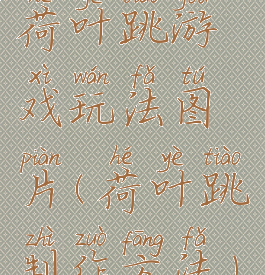 hé yè tiào yóu
荷叶跳游
xì wán fǎ tú
戏玩法图
piàn hé yè tiào
片(荷叶跳
zhì zuò fāng fǎ
制作方法)